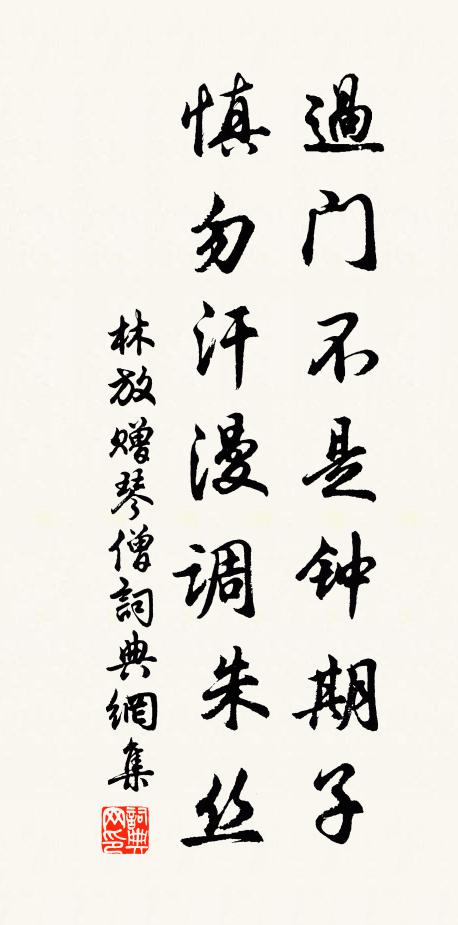 過门不是钟期子
慎勿汗漫调朱丝
林放赠琴僧詞典網集
詞典网印